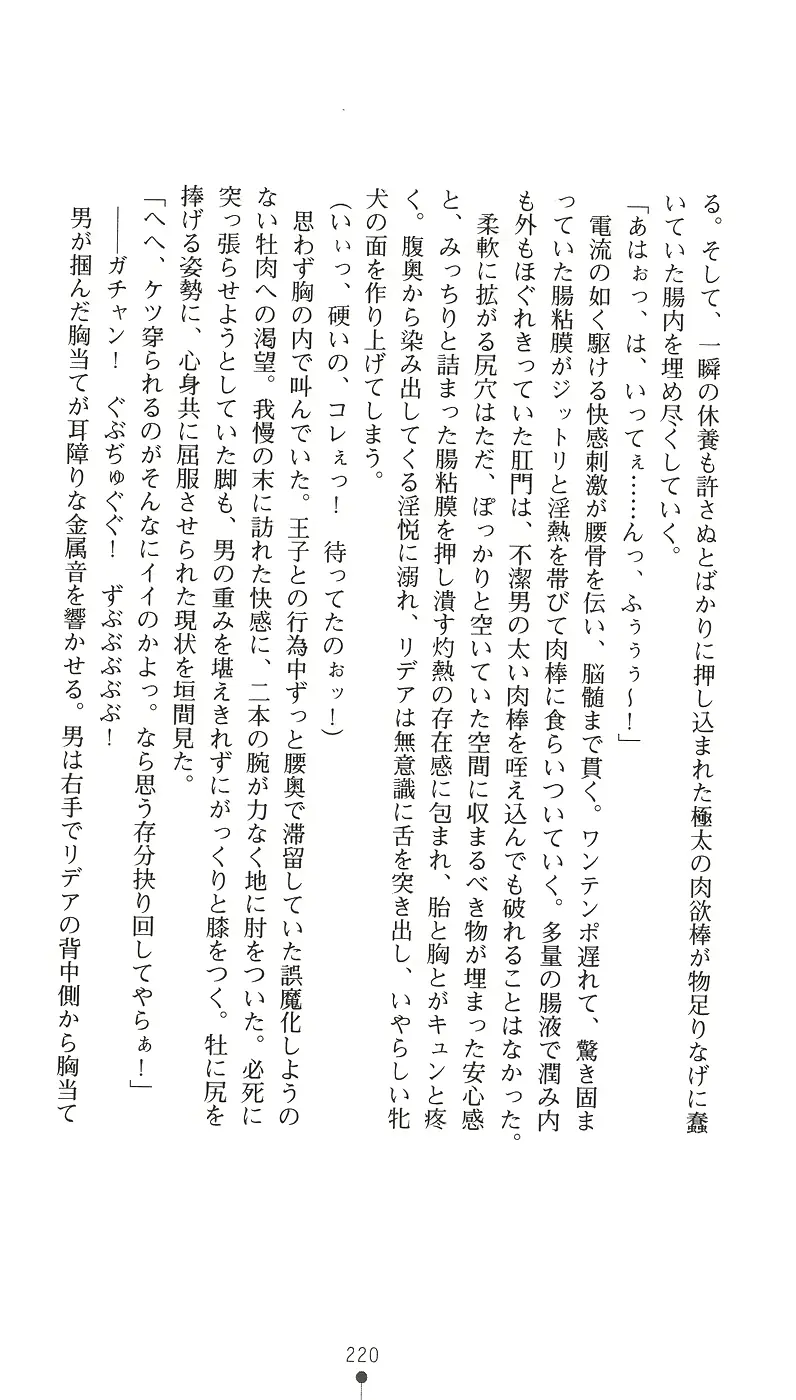 る。そして、一瞬の休養も許さぬとばかりに押し込まれた極太の肉欲棒が物足りなげに蠢
いていた腸内を埋め尽くしていく。
「あはぉっ、は、いってぇ……んっ、ふぅぅぅ～！」
電流の如く駆ける快感刺激が腰骨を伝い、脳髄まで貫く。ワンテンポ遅れて、驚き固ま
っていた腸粘膜がジットリと淫熱を帯びて肉棒に食らいついていく。多量の腸液で潤み内
も外もほぐれきっていた肛門は、不潔男の太い肉棒を咥え込んでも破れることはなかった。
柔軟に拡がる尻穴はただ、ぽっかりと空いていた空間に収まるべき物が埋まった安心感
と、みっちりと詰まった腸粘膜を押し潰す灼熱の存在感に包まれ、胎と胸とがキュンと疼
く。腹奥から染み出してくる淫悦に溺れ、リデアは無意識に舌を突き出し、いやらしい牝
犬の面を作り上げてしまう。
（いぃっ、硬いの、コレぇっ！　待ってたのぉッ！）
思わず胸の内で叫んでいた。王子との行為中ずっと腰奥で滞留していた誤魔化しようの
ない牡肉への渇望。我慢の末に訪れた快感に、二本の腕が力なく地に肘をついた。必死に
突っ張らせようとしていた脚も、男の重みを堪えきれずにがっくりと膝をつく。牡に尻を
捧げる姿勢に、心身共に屈服させられた現状を垣間見た。
「へへ、ケツ穿られるのがそんなにイイのかよっ。なら思う存分抉り回してやらぁ！」
――ガチャン！　ぐぶぢゅぐぐ！　ずぶぶぶぶ！
男が掴んだ胸当てが耳障りな金属音を響かせる。男は右手でリデアの背中側から胸当て
220